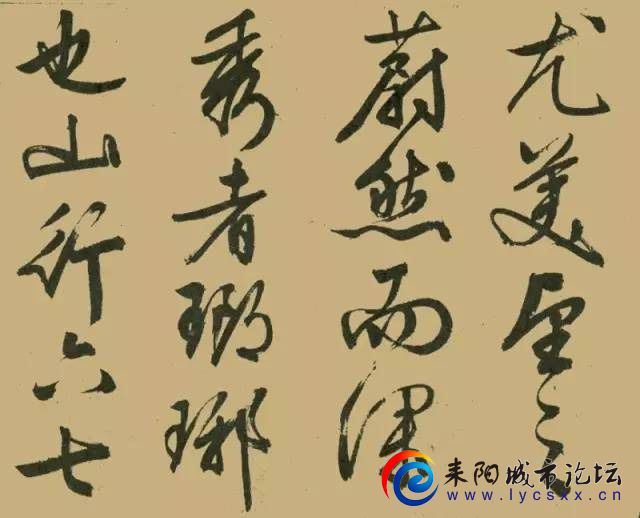 尤美望之
蔚然而深
秀者瑯琊
也山行六七
耒阳城市论坛
www.lycsxx.cn